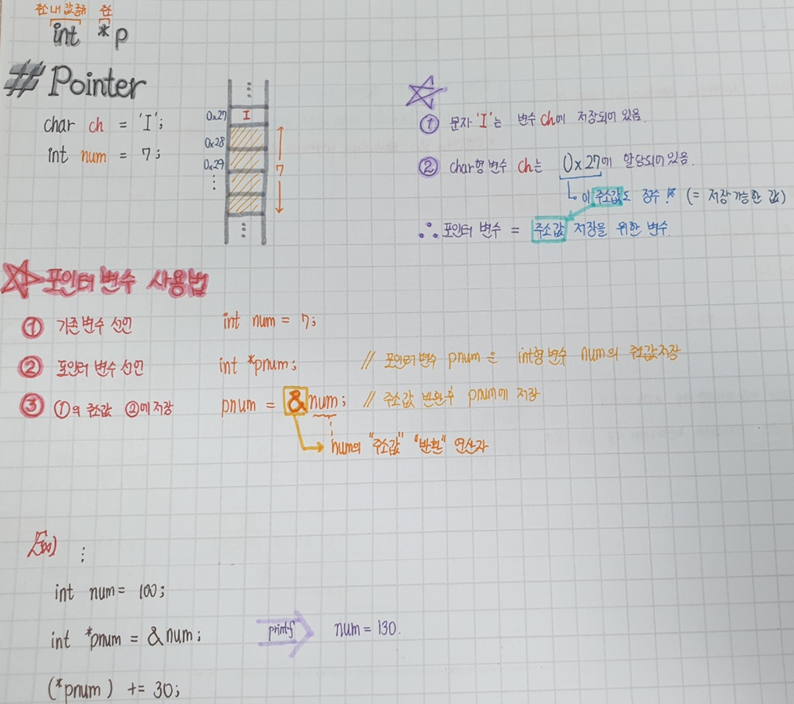 int *p
# Pointer
char ch = 'I';
int num = 7;
0x27 I
0x28
0x29
7
① 문자 'I'는 변수 ch에 저장되어 있음.
② char형 변수 ch는 0x27에 할당되어 있음.
이 주소값도 정수! (= 저장 가능한 값)
∴ 포인터 변수 = 주소값 저장을 위한 변수.
포인터 변수 사용법
① 기존 변수 선언 int num = 7;
② 포인터 변수 선언 int *pnum; // 포인터 변수 pnum은 int형 변수 num의 주소값 저장
③ ①의 주소값 ②에 저장 pnum = &num; // 주소값 반환 후 pnum에 저장
num의 "주소값" "반환" 연산자
Ex)
int num = 100;
int *pnum = &num; printf num = 130.
(*pnum) += 30;